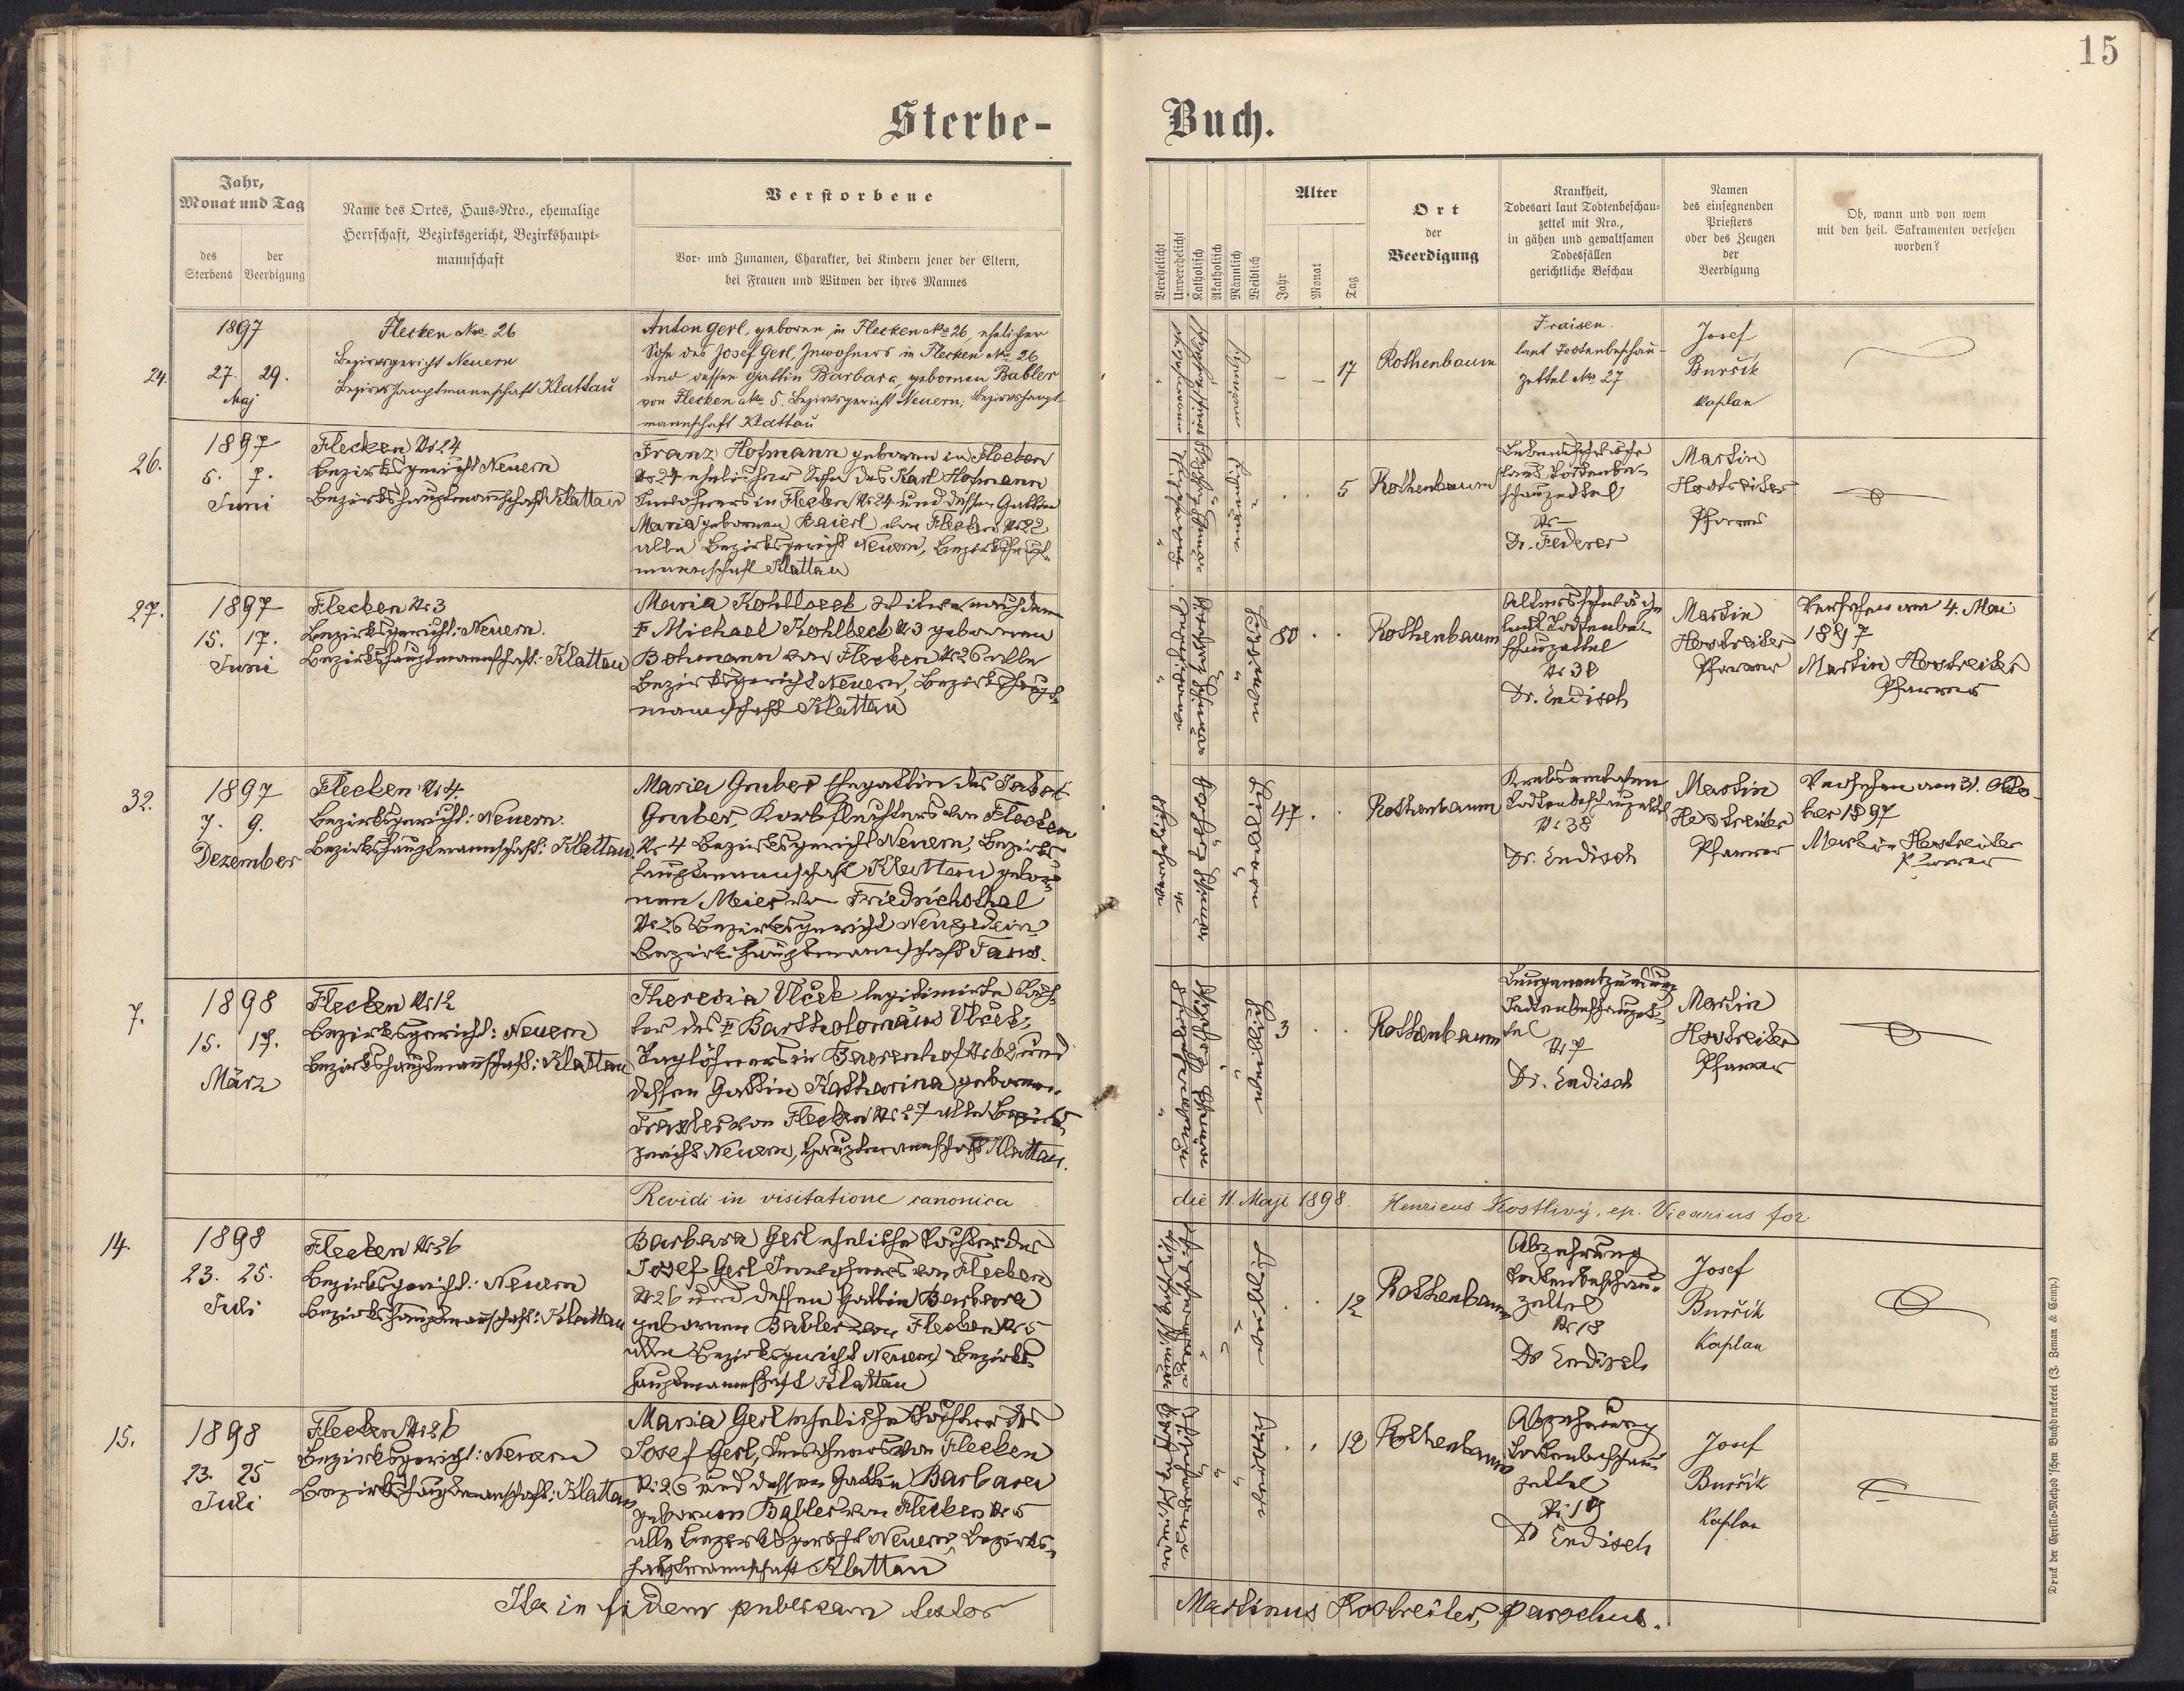 15
Sterbe-
Buch.
Jahr,
Monat und Tag
des
Sterbens
der
Beerdigung
Name des Ortes, Haus-Nro., ehemalige
Herrschaft, Bezirksgericht, Bezirkshaupt-
mannschaft
Verstorbene
Vor- und Zunamen, Charakter, bei Kindern jener der Eltern,
bei Frauen und Witwen der ihres Mannes
Verehelicht
Unverehelicht
Katholisch
Akatholisch
Männlich
Weiblich
Alter
Jahr
Monat
Tag
Ort
der
Beerdigung
Krankheit,
Todesart laut Todtenbeschau-
zettel mit Nro.,
in gähen und gewaltsamen
Todesfällen
gerichtliche Beschau
Namen
des einsegnenden
Priesters
oder des Zeugen
der
Beerdigung
Ob, wann und von wem
mit den heil. Sakramenten versehen
worden?
24.
1897
27. 29.
Maj
Flecken Nro 26
Bezirksgericht Neuern
Bezirkshauptmannschaft Klattau
Anton Gerl, geboren in Flecken No 26, ehelicher
Sohn des Josef Gerl, Inwohners in Flecken No 26
und dessen Gattin Barbara gebornen Babler
von Flecken No 5. Bezirksgericht Neuern, Bezirkshaupt-
mannschaft Klattau
17
Rothenbaum
Fraisen.
laut Todtenbeschau-
zettel No 27
Josef
Buršík
Kaplan
26.
1897
5. 7.
Juni
Flecken Nr 24
Bezirksgericht Neuern
Bezirkshauptmannschaft Klattau
Franz Hofmann geboren in Flecken
Nr 24 ehelicher Sohn des Karl Hofmann
Inwohners in Flecken Nr 24 und dessen Gattin
Maria gebornen Baierl von Flecken Nr 22
alle Bezirksgericht Neuern, Bezirkshaupt-
mannschaft Klattau
5
Rothenbaum
Lebensschwäche
laut Todtenbe-
schauzettel
Nr —
Dr. Federer
Martin
Hostreiter
Pfarrer
27.
1897
15. 17.
Juni
Flecken Nr 3
Bezirksgericht: Neuern.
Bezirkshauptmannschaft: Klattau
Maria Kohlbeck Witwe nach dem
† Michael Kohlbeck Nr 3 gebornen
Bohmann von Flecken Nr 26 alle
Bezirksgericht Neuern, Bezirkshaupt-
mannschaft Klattau
80
Rothenbaum
Altersschwäche
laut Todtenbe-
schauzettel
Nr 30
Dr. Endisch
Martin
Hostreiter
Pfarrer
Versehen am 4. Mai
1897
Martin Hostreiter
Pfarrer
32.
1897
7. 9.
Dezember
Flecken Nr 4.
Bezirksgericht: Neuern.
Bezirkshauptmannschaft: Klattau.
Maria Gruber Ehegattin des Jakob
Gruber, Korbflechters von Flecken
Nr 4 Bezirksgericht Neuern, Bezirks-
hauptmannschaft Klattau gebor-
nen Meier von Friedrichsthal
Nr 26 Bezirksgericht Neugedein
Bezirkshauptmannschaft Taus.
47
Rothenbaum
Todtenbeschauzettel
Nr 38
Dr. Endisch
Martin
Hostreiter
Pfarrer
Versehen am 31. Okto-
ber 1897
Martin Hostreiter
Pfarrer
7.
1898
15. 17.
März
Flecken Nr 12
Bezirksgericht: Neuern
Bezirkshauptmannschaft: Klattau
Theresia Vlček legitimirte Toch-
ter des † Bartholomäus Vlček,
Taglöhners in Bayerhof Nr 62 und
dessen Gattin Katharina gebornen
Trexler von Flecken Nr 27 alle Bezirks-
gericht Neuern, Hauptmannschaft Klattau.
3
Rothenbaum
Lungenentzündung
Todtenbeschauzet-
tel
Nr 7
Dr. Endisch
Martin
Hostreiter
Pfarrer
Revidi in visitatione canonica
die 11. Maji 1898.
Henricus Kostlivý, ep. Vicarius for.
14.
1898
23. 25.
Juli
Flecken Nr 26
Bezirksgericht: Neuern
Bezirkshauptmannschaft: Klattau
Barbara Gerl eheliche Tochter des
Josef Gerl Inwohners von Flecken
Nr 26 und dessen Gattin Barbara
gebornen Babler von Flecken Nr 5
alle Bezirksgericht Neuern Bezirks-
hauptmannschaft Klattau
12
Rothenbaum
Abzehrung
Todtenbeschau-
zettel
Nr 18
Dr Endisch
Josef
Buršík
Kaplan
15.
1898
23. 25
Juli
Flecken Nr 26
Bezirksgericht: Neuern
Bezirkshauptmannschaft: Klattau
Maria Gerl eheliche Tochter des
Josef Gerl, Inwohners von Flecken
Nr 26 und dessen Gattin Barbara
gebornen Babler von Flecken Nr 5
alle Bezirksgericht Neuern, Bezirks-
hauptmannschaft Klattau
12
Rothenbaum
Abzehrung
Todtenbeschau-
zettel
Nr 19
Dr Endisch
Josef
Buršík
Kaplan
Ita in fidem publicam testor
Martinus Hostreiter, parochus.
Druck der Cyrillo-Method'schen Buchdruckerei (J. Zeman & Comp.)